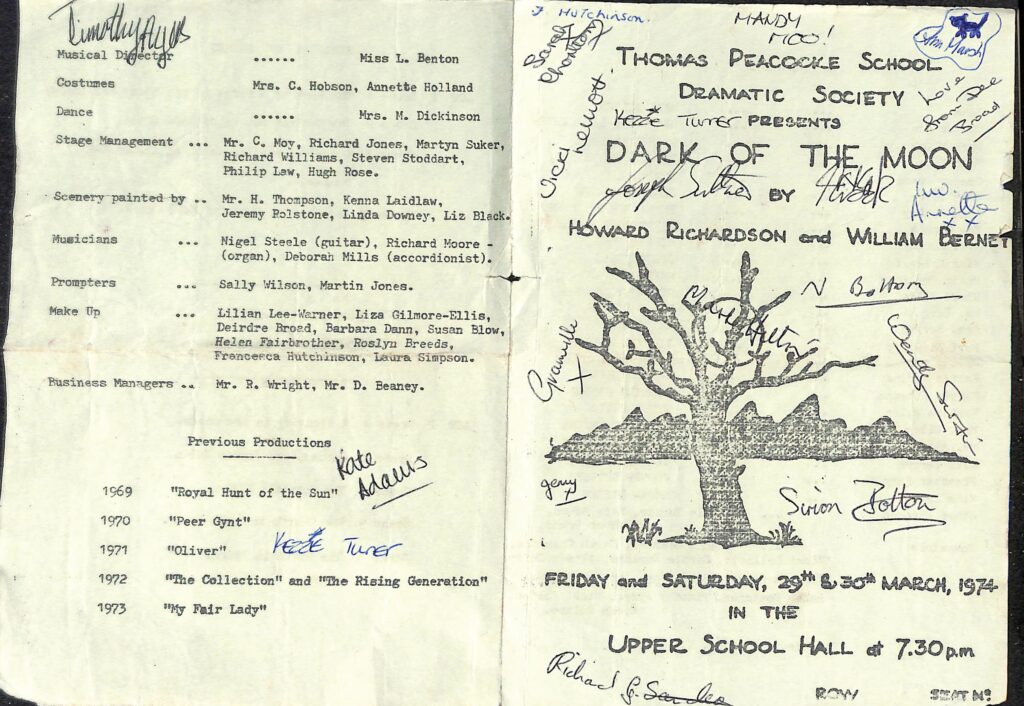 Timothy Ayers
Musical Director ...... Miss L. Benton
Costumes Mrs. C. Hobson, Annette Holland
Dance ...... Mrs. M. Dickinson
Stage Management ... Mr. C. Moy, Richard Jones, Martyn Suker,
Richard Williams, Steven Stoddart,
Philip Law, Hugh Rose.
Scenery painted by .. Mr. H. Thompson, Kenna Laidlaw,
Jeremy Rolstone, Linda Downey, Liz Black.
Musicians ... Nigel Steele (guitar), Richard Moore -
(organ), Deborah Mills (accordionist).
Prompters ... Sally Wilson, Martin Jones.
Make Up ... Lilian Lee-Warner, Liza Gilmore-Ellis,
Deirdre Broad, Barbara Dann, Susan Blow,
Helen Fairbrother, Roslyn Breeds,
Francesca Hutchinson, Laura Simpson.
Business Managers ... Mr. R. Wright, Mr. D. Beaney.
Previous Productions
Kate
Adams
1969 "Royal Hunt of the Sun"
1970 "Peer Gynt"
1971 "Oliver"
Kezzie Turner
1972 "The Collection" and "The Rising Generation"
1973 "My Fair Lady"
F Hutchinson.
MANDY
MOO!
Ann Marsh
Sarah
THOMAS PEACOCKE SCHOOL
DRAMATIC SOCIETY
Love
from Dee
Broad
Vicki
Kezzie Turner
PRESENTS
DARK OF THE MOON
Joseph
BY
luv.
Annette
x x
HOWARD RICHARDSON and WILLIAM BERNEY
N Bottom
Mark
Granville
x
Wendy
gerry
x
Simon Bolton
FRIDAY and SATURDAY, 29th & 30th MARCH, 1974
IN THE
UPPER SCHOOL HALL at 7.30 p.m
Richard G.
ROW SEAT No